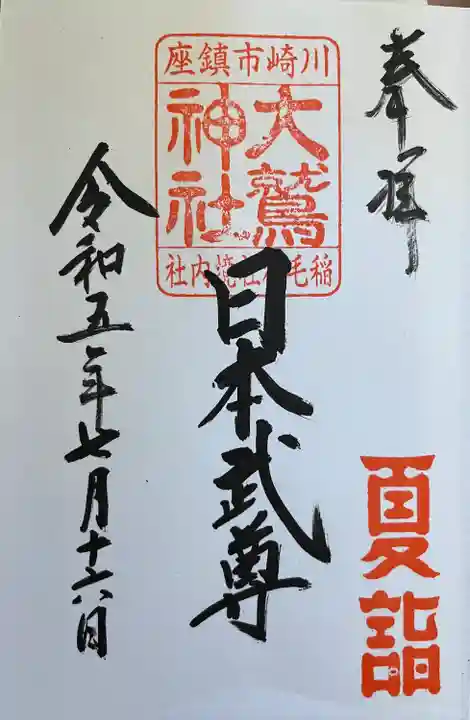 奉拝
夏詣
川崎市鎮座
大鷲神社
稲毛神社境内社
日本武尊
令和五年七月十六日